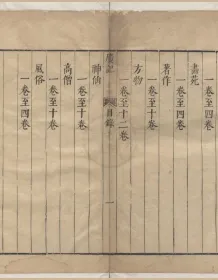 一卷至四卷
著作
一卷至四卷
方物
一卷至十二卷
目錄
一
神仙
一卷至十卷
高僧
一卷至十卷
風俗
一卷至四卷